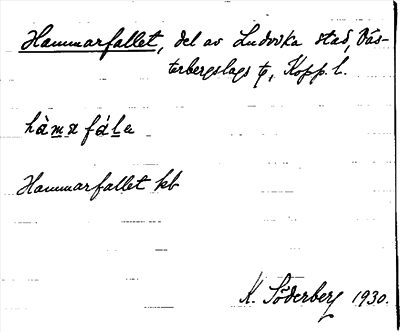 Hammarfallet, del av Ludvika stad, Väs-
terbergslags tg, Kopp. l.
hàmafála
Hammarfallet kb
K. Söderberg 1930.